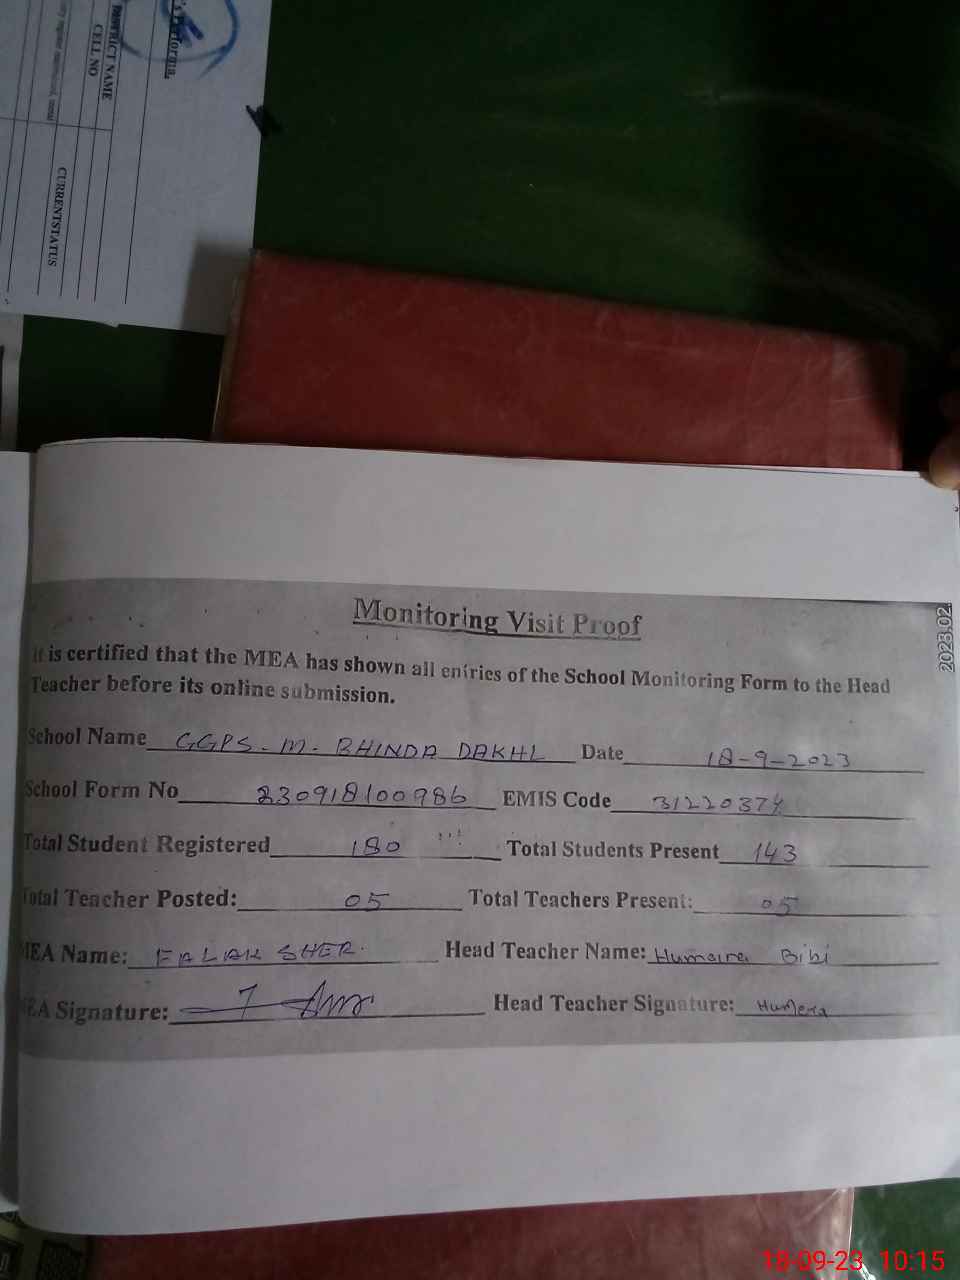 's Performa.
DISTRICT NAME
CELL NO
CURRENT STATUS
Monitoring Visit Proof
It is certified that the MEA has shown all entries of the School Monitoring Form to the Head
Teacher before its online submission.
School Name GGPS. M. BHINDA DAKHL Date 18-9-2023
School Form No 230918100986 EMIS Code
Total Student Registered 180 Total Students Present 143
Total Teacher Posted: 05 Total Teachers Present: 05
MEA Name: FALAK SHER. Head Teacher Name: Humaira Bibi
MEA Signature: Head Teacher Signature: Humera
2023.02.
18-09-23 10:15